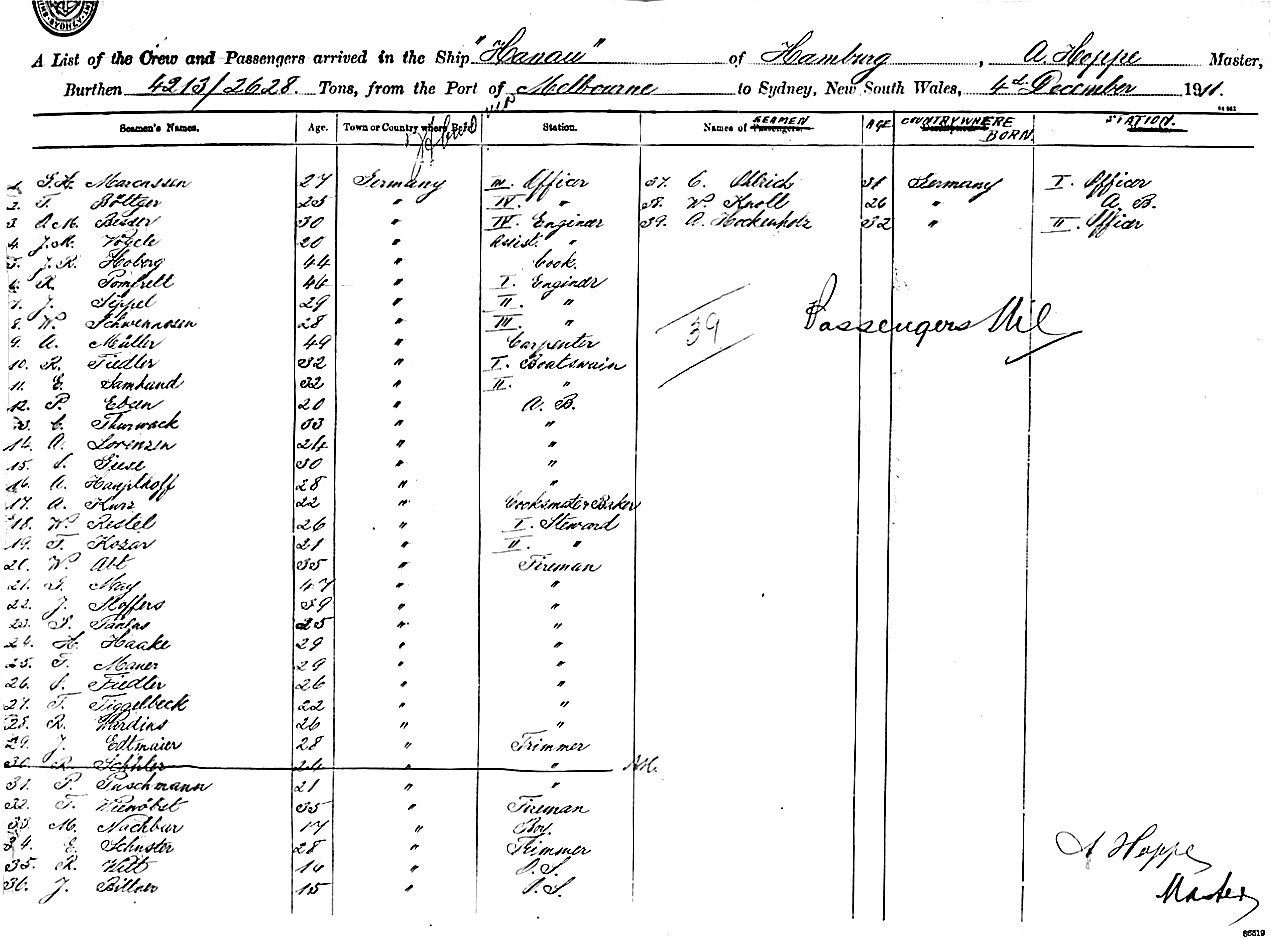 A List of the Crew and Passengers arrived in the Ship "Hanau" of Hamburg, A. Hoppe Master,
Burthen 4213/2628. Tons, from the Port of Melbourne to Sydney, New South Wales, 4th December 1911.
Seamen's Names. Age. Town or Country where Station. Names of SEAMEN Passengers. AGE COUNTRY WHERE BORN. STATION.
Marcussen 27 Germany III. Officer 37. C. Ohlrich 31 Germany I. Officer
2. Böttger 25 " IV. " 38. W. Knoll 26 " A. B.
3 30 " IV. Engineer 39. A. Hockenholz 32 " II. Officer
4. J.M. 20 " Assist. "
5. J. R. Hoberg 44 " Cook.
6. R. 46 " I. Engineer
7. J. Sippel 29 " II. "
8. W. 28 " III. "
9. A. Müller 49 " Carpenter
10. R. Fiedler 32 " I. Boatswain
39
Passengers Nil
11. E. Samhand 32 " II. "
12. P. Eben 20 " A. B.
13. C. Thurwack 33 " "
14. A. Lorenzen 24 " "
15. Giese 30 " "
16. A. 28 " "
17. A. Kurz 22 " Cooksmate & Baker
18. W. Restel 26 " I. Steward
19. F. Kozar 21 " II. "
20. W. Abt 35 " Fireman
21. May 47 " "
22. J. Stoffers 39 " "
23. 25 " "
24. H. Haake 29 " "
25. F. Maner 29 " "
26. Fiedler 26 " "
27. F. Tiggelbeck 22 " "
28. R. Wardins 26 " "
29. J. Edtmaier 28 " Trimmer
30. R. 24 " "
31. P. Puschmann 21 " "
32. F. 35 " Fireman
33. M. Nachbar 17 " Boy.
34. E. Schuster 28 " Trimmer
35. R. Witt 16 " O. S.
36. J. Bittner 15 " O. S.
A Hoppe
Master
66519